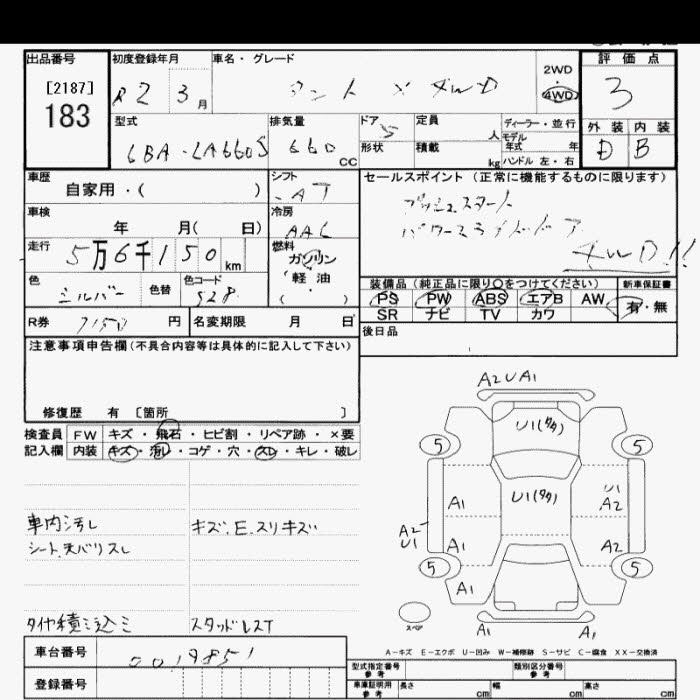 出品番号 初度登録年月 車名・グレード 2WD 4WD 評価点
[2187]
183
R2 3月
タント X 4WD
3
型式 排気量 ドア 定員 人 ディーラー・並行 外装 内装
6BA-LA660S 660 CC 5 形状 積載 kg モデル年式 年 ハンドル 左・右 D B
車歴 シフト セールスポイント (正常に機能するものに限ります)
自家用・( ) AT
プッシュスタート
車検 冷房
パワースライドドア
年 月( 日) AAC
4WD!!
走行 燃料
5万6千150km ガソリン
(軽油・ )
色 色替 色コード
シルバー S28
装備品 (純正品に限り〇をつけてください) 新車保証書
PS PW ABS エアB AW 有・無
SR ナビ TV カワ
R券 7150円 名変期限 月 日
後日品
注意事項申告欄(不具合内容等は具体的に記入して下さい)
修復歴 有 〔箇所 〕
検査員 FW キズ・飛石・ヒビ割・リペア跡・×要
記入欄 内装 キズ・汚レ・コゲ・穴・スレ・キレ・破レ
A2UA1
U1(タタ)
5 5
U1(タタ)
A1
U1
A2
A2
U1
A1
A2
5 5
A1
スペア
A1 A1
車内汚レ キズ.E.スリキズ
シート天バリスレ
タイヤ積ミ込ミ スタッドレスT
A-キズ E-エクボ U-凹み W-補修跡 S-サビ C-腐食 XX-交換済
車台番号 0019851
登録番号
型式指定番号 参考 類別区分番号 参考
車庫証明用 参考 長さ cm 幅 cm 高さ cm